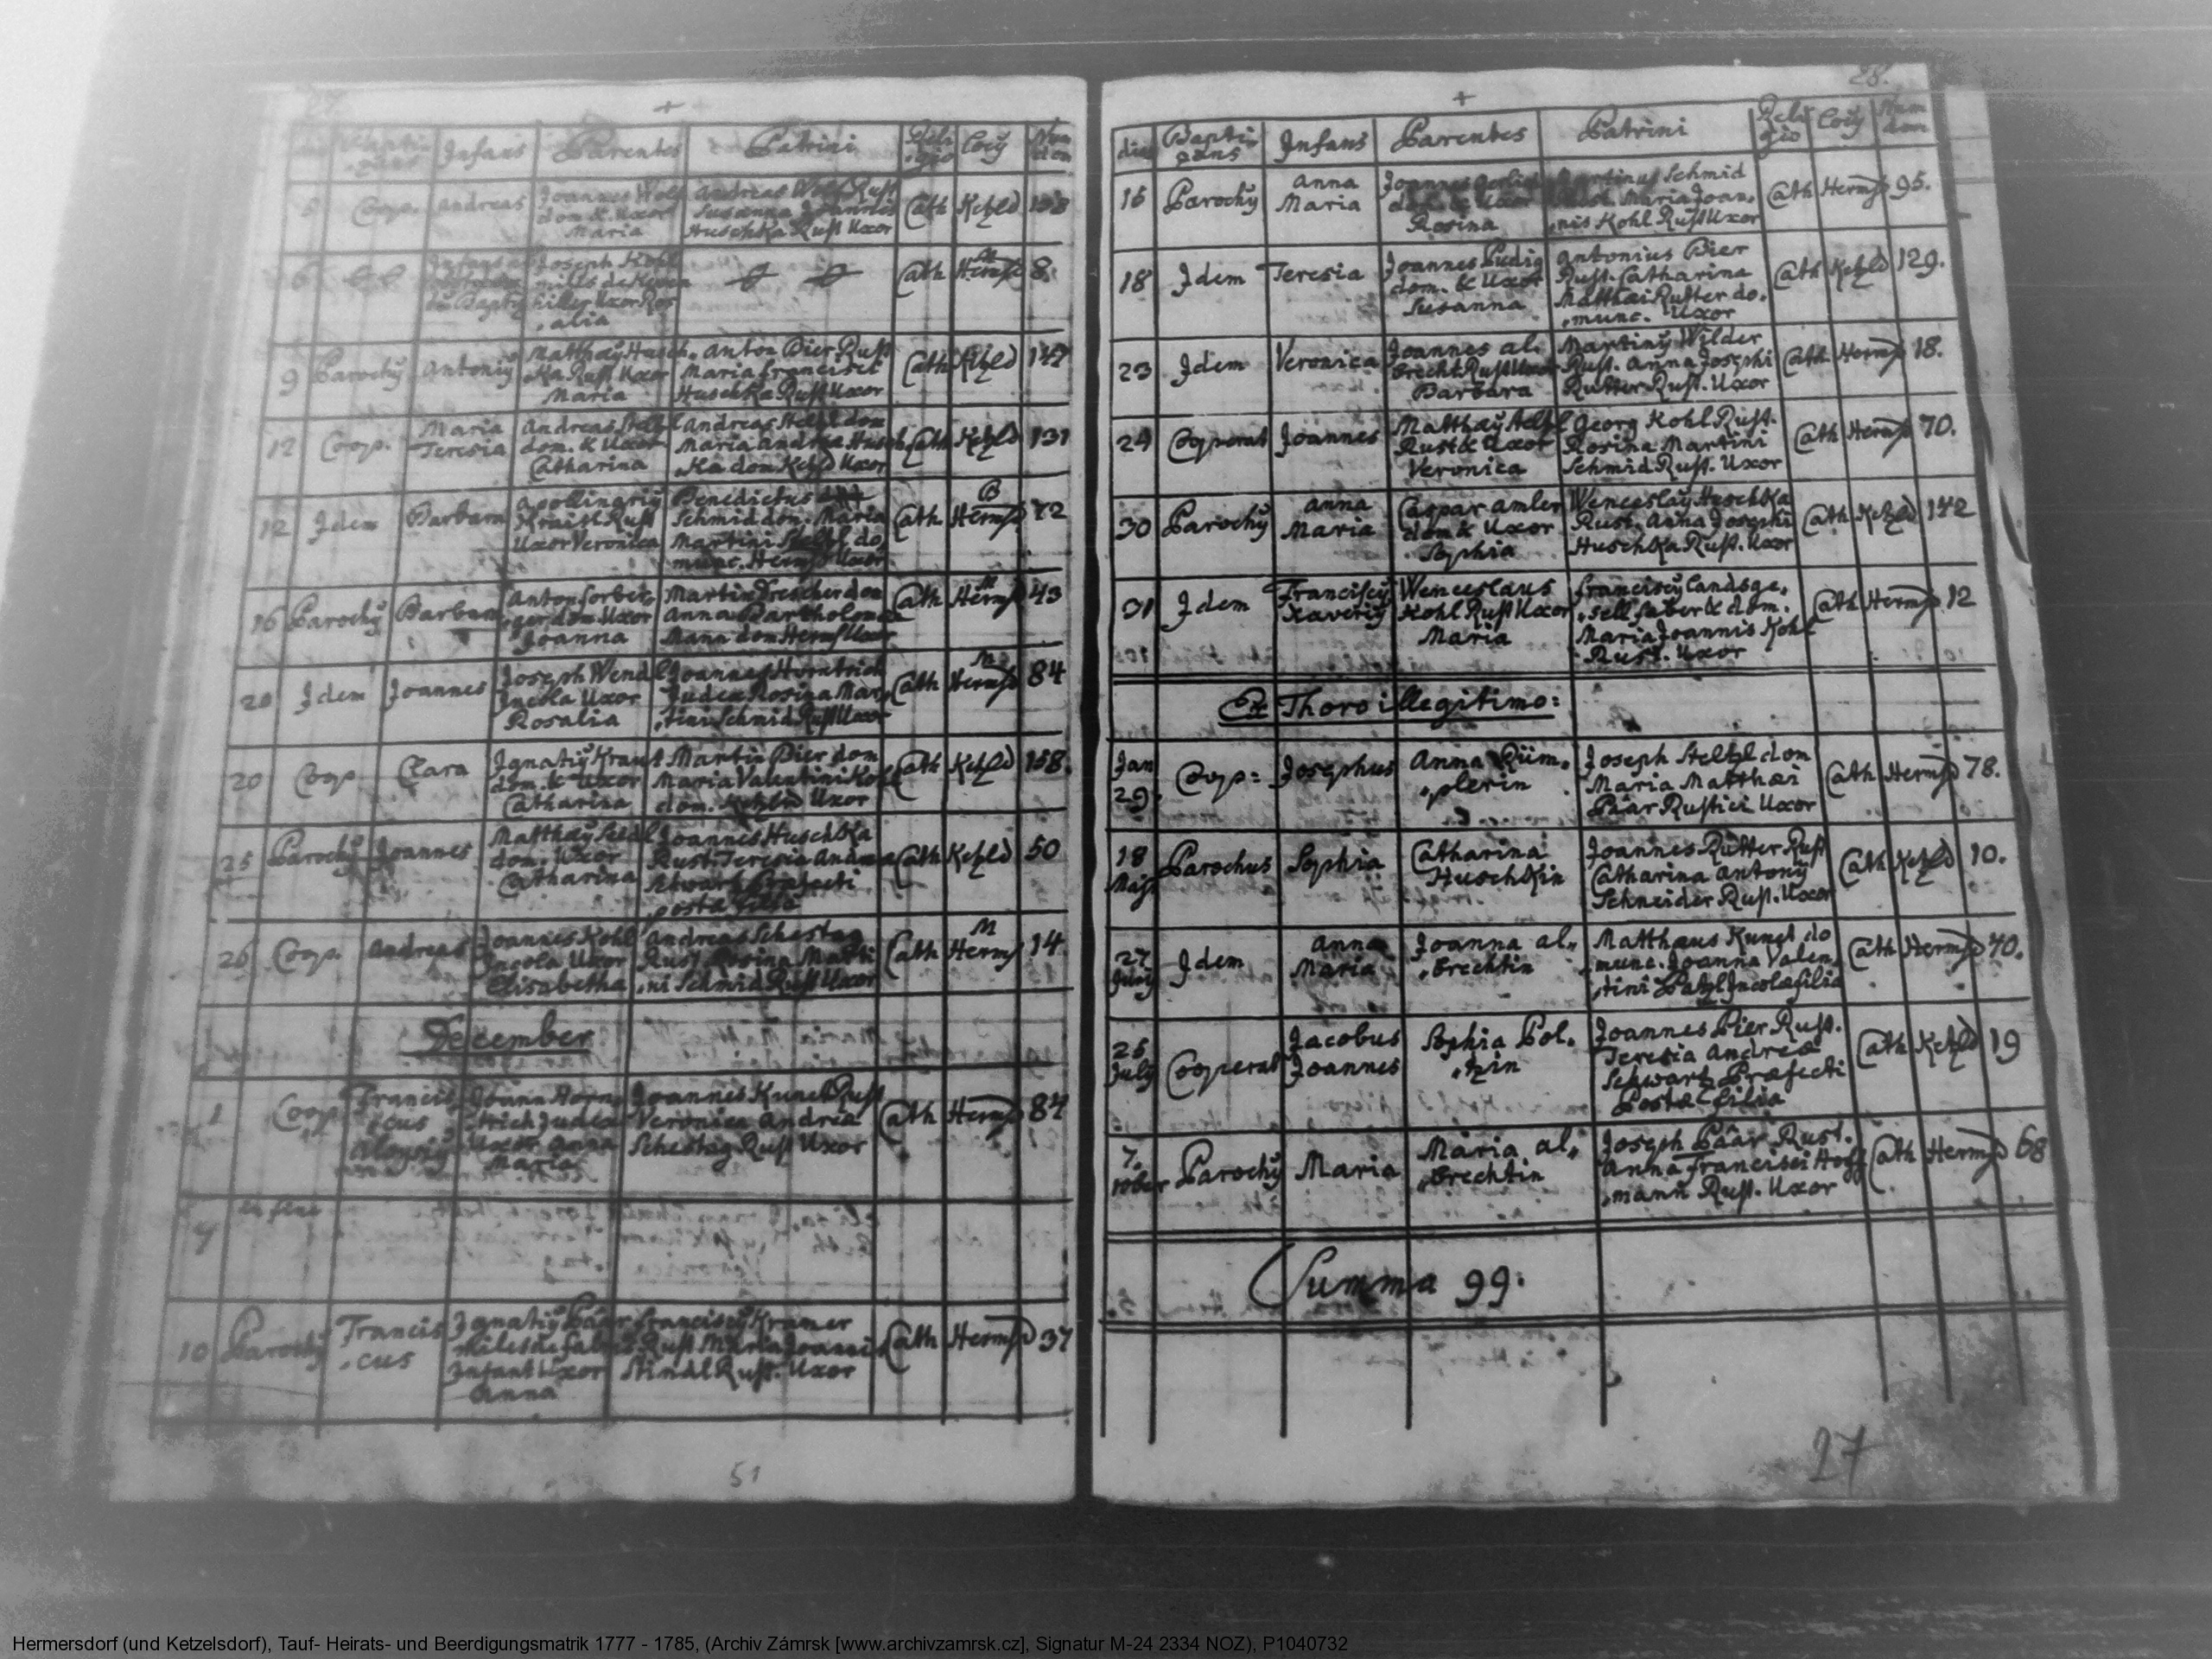 +
Infans Parentes Patrini Reli
gio Locy Num
don
5 Coop. Andreas Joannes Wolf
dom. & Uxor
Maria
Andreas Wolf Rust
Susanna Joannis
Huschka Rust Uxor
Cath Ketzld
6 Joseph Kohl
alia
Cath Hermsd 8.
9 Parochy Antoniy Matthæy Husch„
„ka Rust Uxor
Maria
Anton Pier Rust
Maria Francisci
Huschka Rust Uxor
Cath Ketzld 147
12 Coop. Maria
Teresia
Andreas Steltzl
dom. & Uxor
Catharina
Andreas Steltzl dom
Maria Andreæ Husch
„ka dom Ketzld Uxor
Cath Ketzld 131
12 Idem Barbara Apollinariy
Rust
Uxor Veronica
Benedictus
Schmid dom. Maria
Martini Steltzl do
munc. Hermsd Uxor
Cath Hermsd 72
16 Parochy Barbara Anton Forber„
„ger dom Uxor
Joanna
Martin Drescher dom
Anna Bartholomæi
Mann dom Herms Uxor
Cath Hermsd 43
20 Idem Joannes Joseph Wendl
Incola Uxor
Rosalia
Joannes Horntrich
Judex Rosina Mar„
„tini Schmid Rust Uxor
Cath Hermsd 84
20 Coop Clara Ignatiy Kraut
dom. & Uxor
Catharina
Martin Pier dom
Maria Valentini Kohl
dom. Ketzld Uxor
Cath Ketzld 158.
25 Parochy Joannes Matthæy Seidl
dom. Uxor
Catharina
Joannes Huschka
Rust. Teresia Andreæ
Schwartz Præfecti
postæ filia
Cath Ketzld 50
26 Coop. Andreas Joannes Kohl
Incola Uxor
Elisabetha
Andreas Schestag
Rust Rosina Marti
„ni Schmid Rust Uxor
Cath Herms 14
December
1 Coop. Francis„
„cus
Aloysiy
Joann Horn„
„trich Judex
Uxor Anna
Maria
Joannes Kunct Rust
Veronica Andreæ
Schestag Rust Uxor
Cath Hermsd 84
10 Parochy Francis
„cus
Ignatiy Páár
miles de
Infant Uxor
Anna
Franciscy Kramer
Rust Maria Joannis
Stindl Rust. Uxor
Cath Hermsd 37
51
28.
+
die Bapti
zans Infans Parentes Patrini Reli
gio Locy Num
dom
15 Parochy Anna
Maria
Joannes
dom. & Uxor
Rosina
Martinus Schmid
Rust. Maria Joan„
„nis Kohl Rust Uxor
Cath Hermsd 95.
18 Idem Teresia Joannes Pudig
dom. & Uxor
Susanna
Antonius Pier
Rust. Catharina
Matthæi Rutter do„
„munc. Uxor
Cath Ketzld 129.
23 Idem Veronica Joannes Al„
brecht Rust Uxor
Barbara
Martiny Wilder
Rust. Anna Josephi
Rutter Rust. Uxor
Cath Hermsd 18.
24 Cooperat Joannes Matthæy Steltzl
Rust & Uxor
Veronica
Georg Kohl Rust.
Rosina Martini
Schmid Rust. Uxor
Cath Hermsd 70.
30 Parochy Anna
Maria
Caspar Amler
dom & Uxor
Sophia
Wenceslay Huschka
Rust. Anna Josephi
Huschka Rust. Uxor
Cath Ketzld 142
31 Idem Franciscy
Xaveriy
Wenceslaus
Kohl Rust Uxor
Maria
Franciscy Landsge„
„sell faber & dom.
Maria Joannis Kohl
Rust. Uxor
Cath Hermsd 12
Ex Thoro illegitimo:
Jan
29.
Coop: Josephus Anna Rüm„
„plerin
Joseph Steltzl dom
Maria Matthæi
Páár Rustici Uxor
Cath Hermsd 78.
18
Maji
Parochus Sophia Catharina
Huschkin
Joannes Rutter Rust
Catharina Antony
Schneider Rust. Uxor
Cath Ketzld 10.
27
Juny
Idem Anna
Maria
Joanna Al„
„brechtin
Matthæus Kunct do
„munc. Joanna Valen„
„tini Patzl Incolæ filia
Cath Hermsd 40.
25
July
Cooperat Jacobus
Joannes
Sophia Pol„
„tzin
Joannes Pier Rust.
Teresia Andreæ
Schwartz Præfecti
Postæ filia
Cath Ketzld 19
7.
10ber
Parochy Maria Maria Al„
„brechtin
Joseph Páár Rust.
Anna Francisci Hoff
„mann Rust. Uxor
Cath Hermsd 68
Summa 99.
27
Hermersdorf (und Ketzelsdorf), Tauf- Heirats- und Beerdigungsmatrik 1777 - 1785, (Archiv Zámrsk [www.archivzamrsk.cz], Signatur M-24 2334 NOZ), P1040732